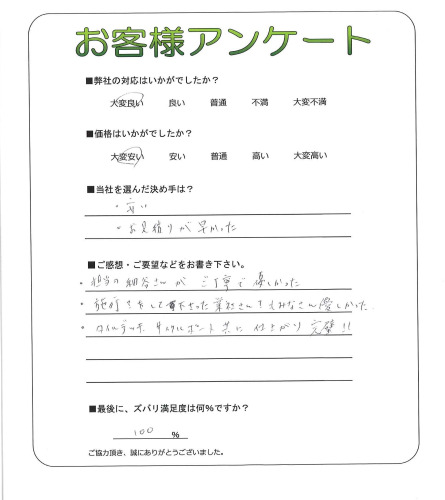 お客様アンケート
■弊社の対応はいかがでしたか?
大変良い 良い 普通 不満 大変不満
■価格はいかがでしたか?
大変安い 安い 普通 高い 大変高い
■当社を選んだ決め手は?
・安い
・お見積りが早かった
■ご感想・ご要望などをお書き下さい。
・担当の細谷さんがご丁寧で優しかった
・施行をして下さった業社さんもみなさん優しかった
・タイルデッキ サイクルポート共に仕上がり完璧!!
■最後に、ズバリ満足度は何%ですか?
100 %
ご協力頂き、誠にありがとうございました。